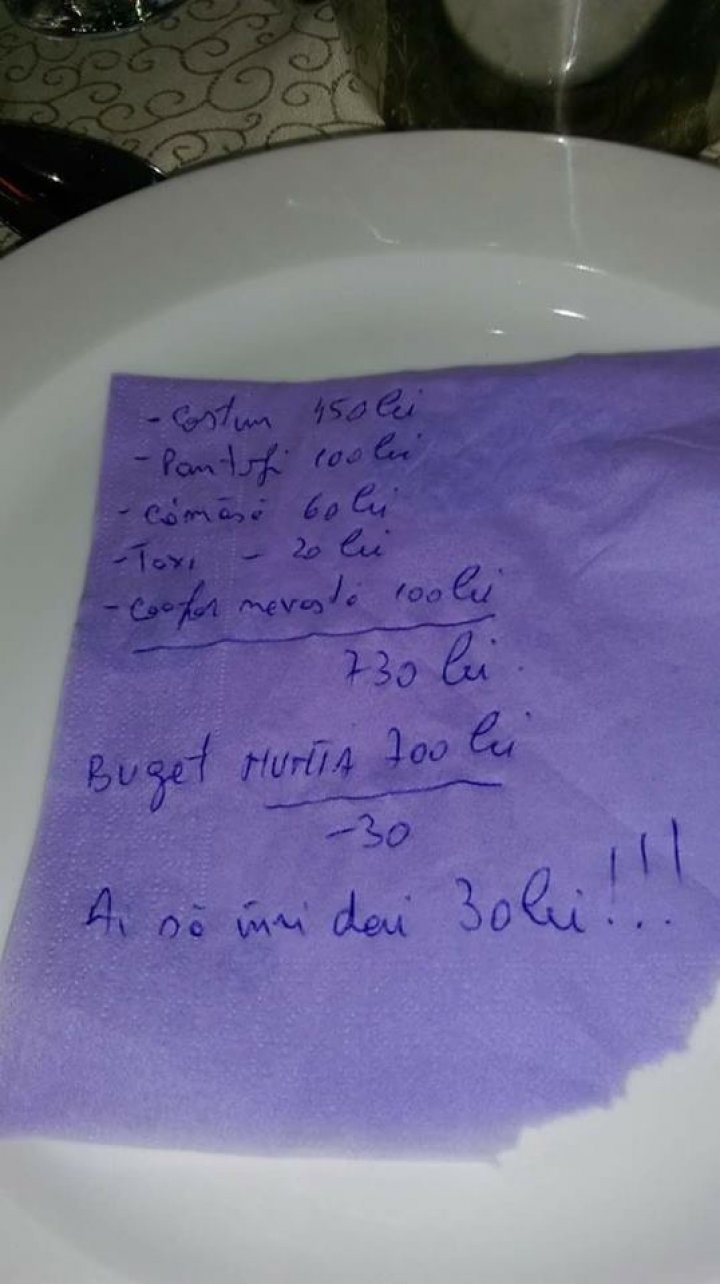 - Costum 450 lei
- Pantofi 100 lei
- Cămăsă 60 lei
- Taxi - 20 lei
- Coafor nevastă 100 lei
730 lei.
Buget NUNTA 700 lei
-30
Ai să îmi dai 30 lei!!!